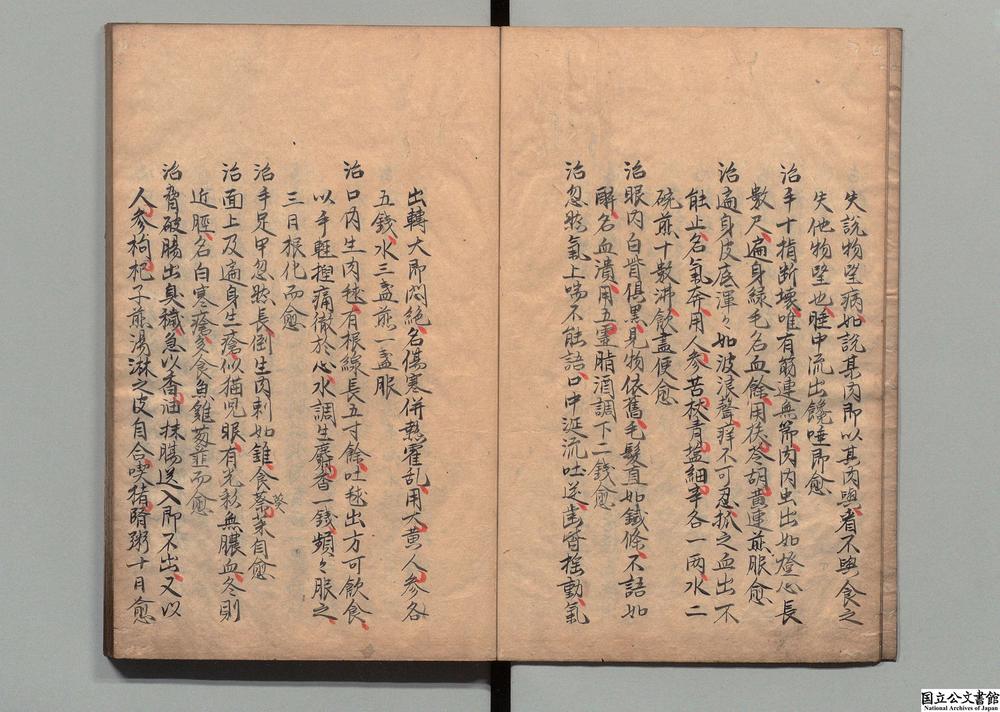 失説物望病如説某肉即以某肉與看不與食之
失他物望也睡中流出饞唾即愈
治手十指断壊唯有筋連無節肉内虫出如燈心長
數尺遍身緑毛名血餘用茯苓胡黄連煎服愈
治遍身皮底渾々如波浪聲痒不可忍抓之血出不
能止名氣奔用人参苦杖青塩細辛各一両水二
碗煎十數沸飲盡便愈
治眼内白眥倶黒見物依舊毛髮直如鐵條不語如
酔名血潰用五霊脂酒調下二錢愈
治忽然氣上喘不能語口中涎流吐逆歯皆揺動氣
出轉大即悶絶名傷寒併熱霍乱用大黄人参各
五錢水三盞煎一盞服
治口内生肉毬有根線長五寸餘吐毬出方可飲食
以手軽揑痛徹於心水調生麝香一錢頻々服之
三日根化而愈
治手足甲忽然長倒生肉刺如錐食葵菜自愈
葵
治面上及遍身生瘡似猫児眼有光彩無膿血冬則
近脛名白寒瘡多食魚雞葱韮而愈
治脅破腸出臭穢急以香油抹腸送入即不出又以
人参枸杞子煎湯淋之皮自合喫猪腎粥十日愈
国立公文書館
National Archives of Japan